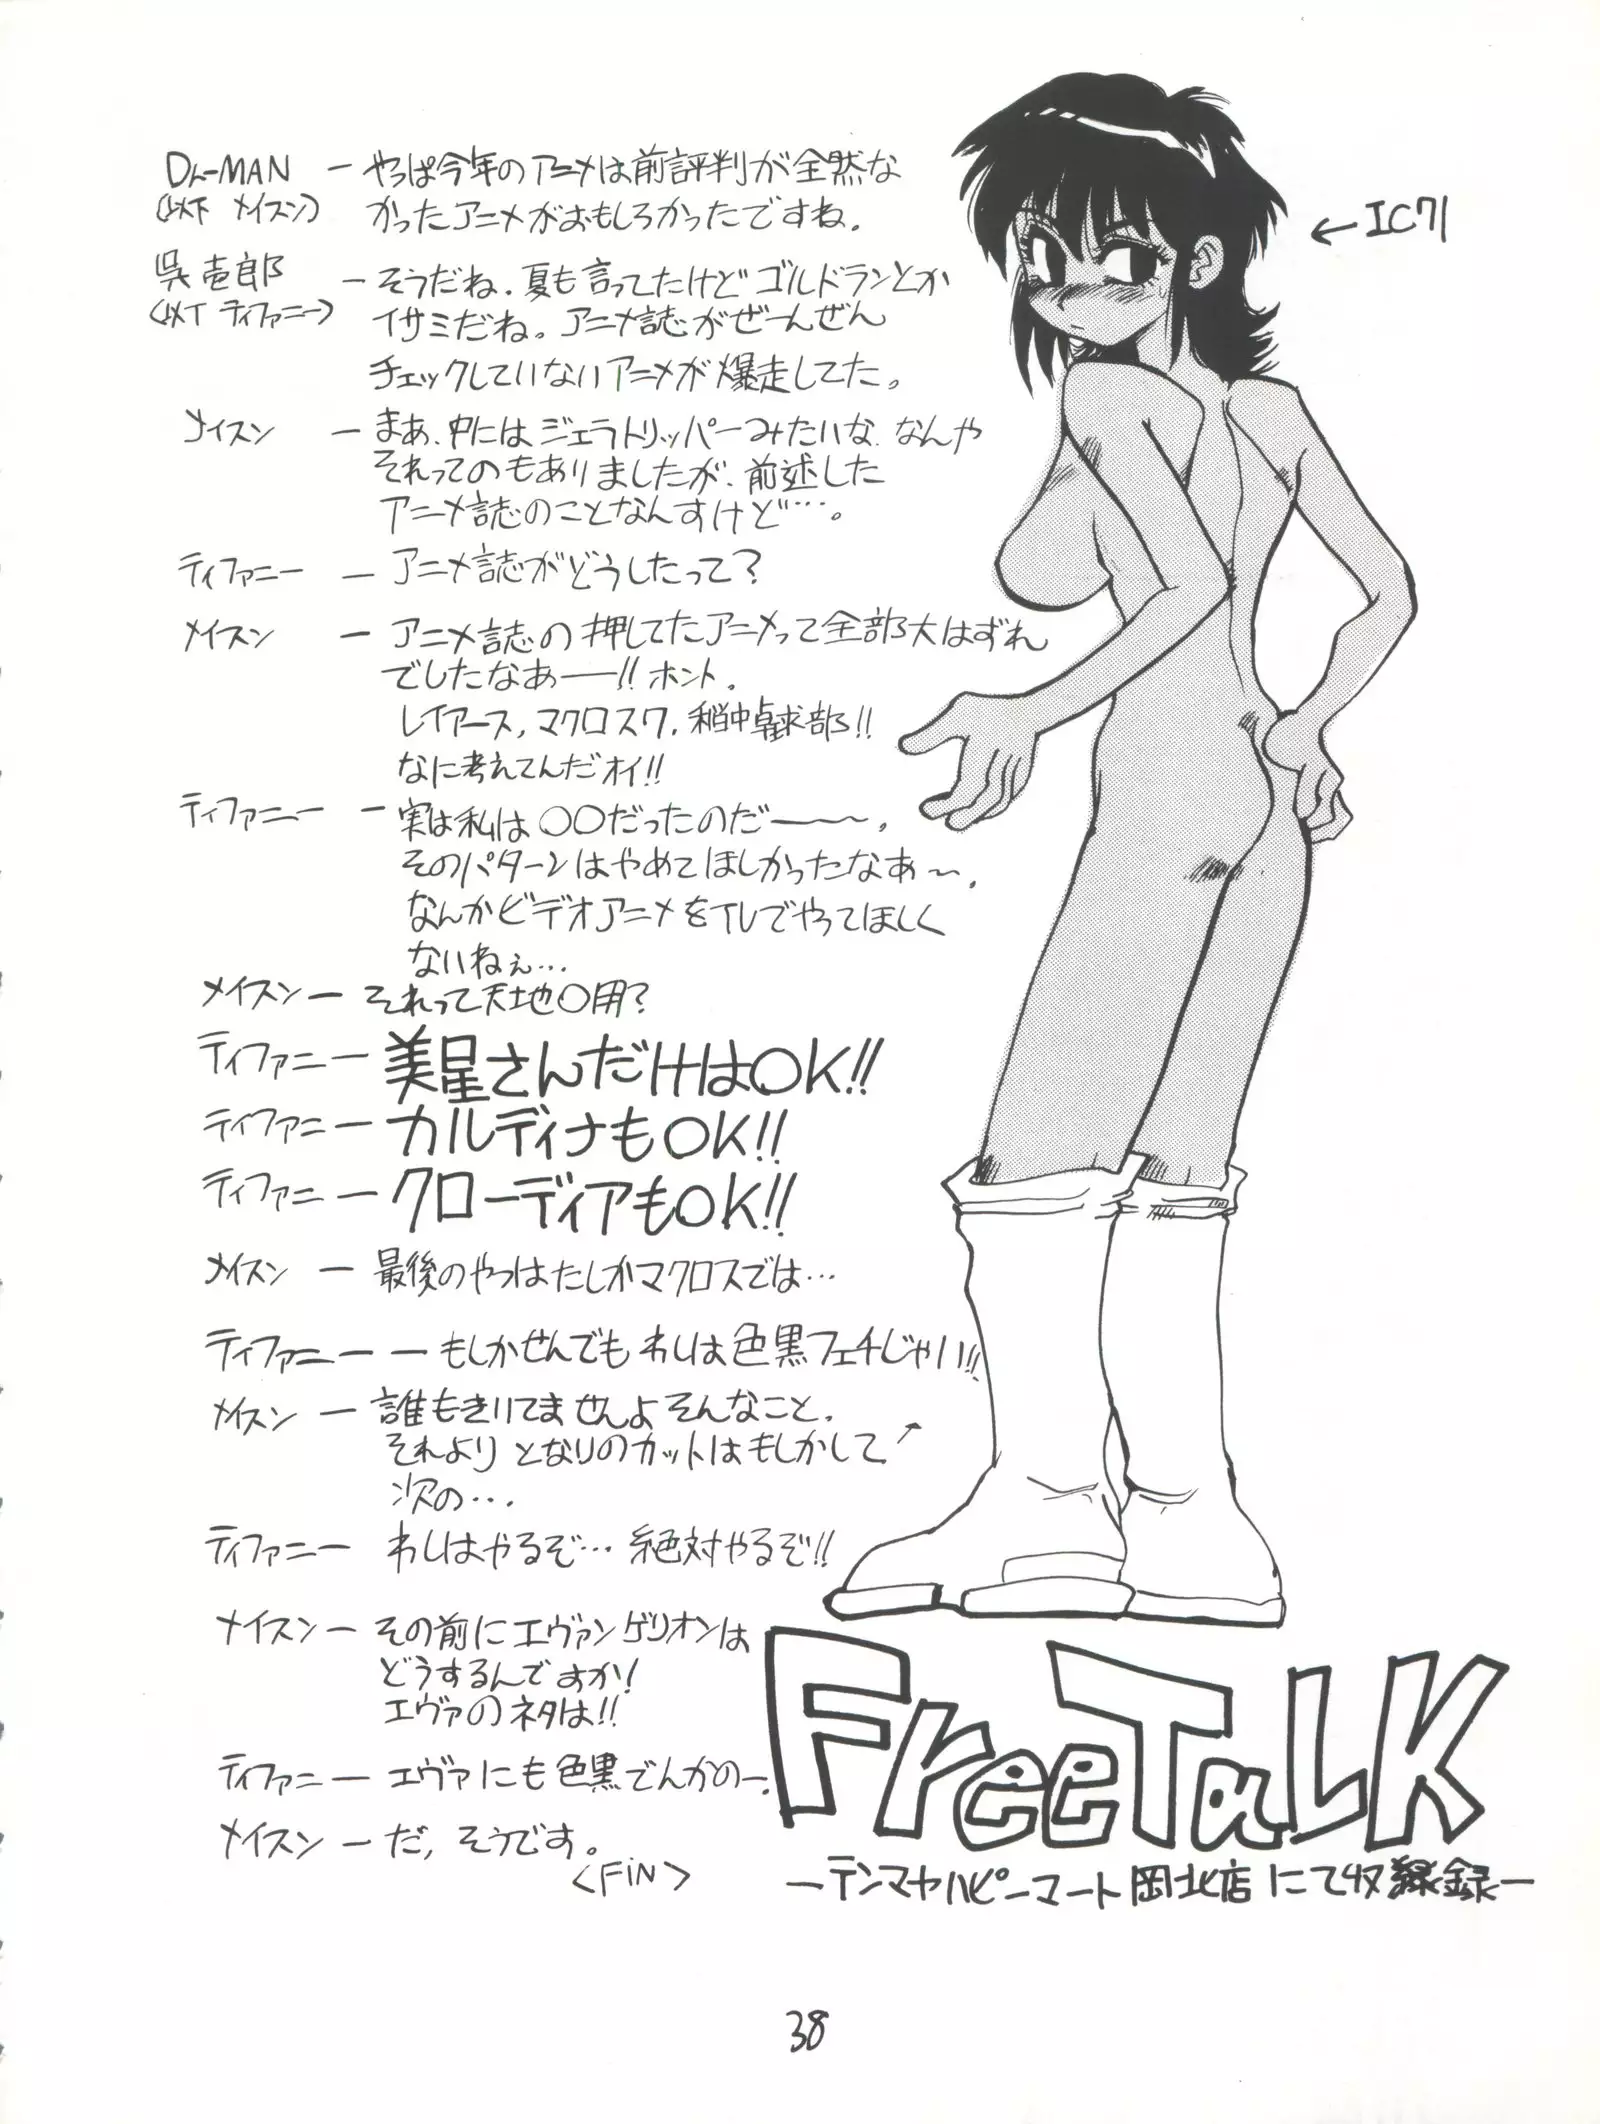 Dr-MAN - やっぱ今年のアニメは前評判が全然な
(以下 メイスン) かったアニメがおもしろかったですね。
←IC71
呉壱郎 - そうだね。夏も言ってたけどゴルドランとか
(以下 ティファニー) イサミだね。アニメ誌がぜーんぜん
チェックしていないアニメが爆走してた。
メイスン - まあ、中にはジェラトリッパーみたいな、なんや
それってのもありましたが、前述した
アニメ誌のことなんすけど…。
ティファニー - アニメ誌がどうしたって?
メイスン - アニメ誌の押してたアニメって全部大はずれ
でしたなあ——!! ホント。
レイアース,マクロス7,稲中卓球部!!
なに考えてんだオイ!!
ティファニー - 実は私は○○だったのだ——〜。
そのパターンはやめてほしかったなあ〜。
なんかビデオアニメをTVでやってほしく
ないねぇ…
メイスン - それって天地○用?
ティファニー - 美星さんだけはOK!!
ティファニー - カルディナもOK!!
ティファニー - クローディアもOK!!
メイスン - 最後のやつはたしかマクロスでは…
ティファニー - もしかせんでもわしは色黒フェチじゃい!!
メイスン - 誰もきいてませんよそんなこと。
それよりとなりのカットはもしかして↗
次の…。
ティファニー わしはやるぞ…絶対やるぞ!!
メイスン - その前にエヴァンゲリオンは
どうするんですか!
エヴァのネタは!!
ティファニー - エヴァにも色黒でんかのー。
メイスン - だ,そうです。
<FiN>
FreeTaLK
-テンマヤハピーマート岡北店にて収録-
38